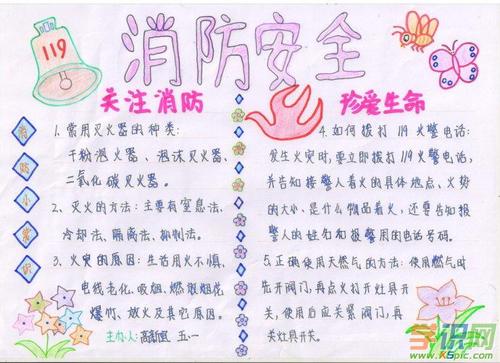 119
消防安全
关注消防
珍爱生命
消防小常识
1.常用灭火器的种类:
干粉泡火器、泡沫灭火器、
二氧化碳灭火器。
2、灭火的方法:主要有窒息法、
冷却法、隔离法、抑制法。
3、火灾的原因:生活用火不慎,
电线老化、吸烟、燃放烟花
爆竹、放火及其它原因。
主办人: 五·一
4.如何拨打119火警电话:
发生火灾时,要立即拨打119火警电话,
并告知接警人着火的具体地点、火势
的大小、是什么物品着火,还要告知报
警人的姓名和报警用的电话号码。
5.正确使用天然气的方法:使用燃气时
先开阀门,再点火打开灶具开
关,使用后应关紧阀门,再
关灶具开关。
学识网
www.K5pic.com